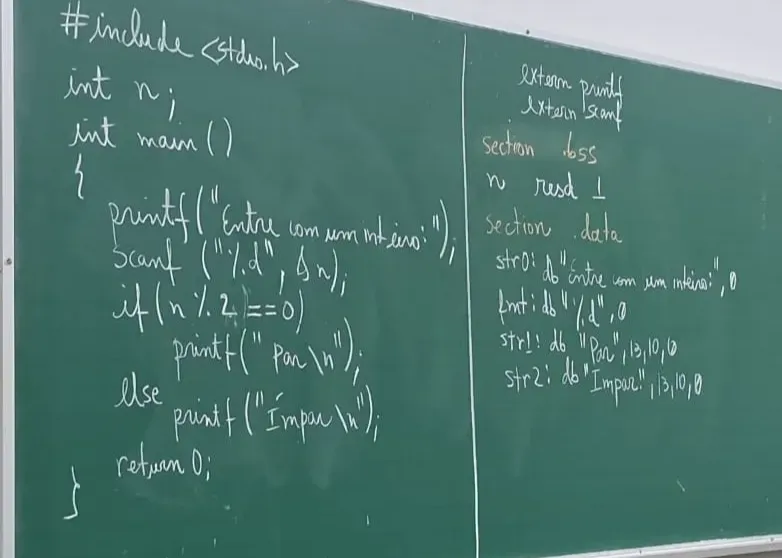 #include <stdio.h>
int n;
int main()
{
printf("Entre com um inteiro:");
scanf ("%d", &n);
if(n % 2 ==0)
printf("Par\n");
else
printf("Ímpar\n");
return 0;
}
extern printf
extern scanf
section .bss
n resd 1
section .data
str0: db "Entre com um inteiro:", 0
fmt: db "%d", 0
str1: db "Par", 13, 10, 0
str2: db "Ímpar", 13, 10, 0